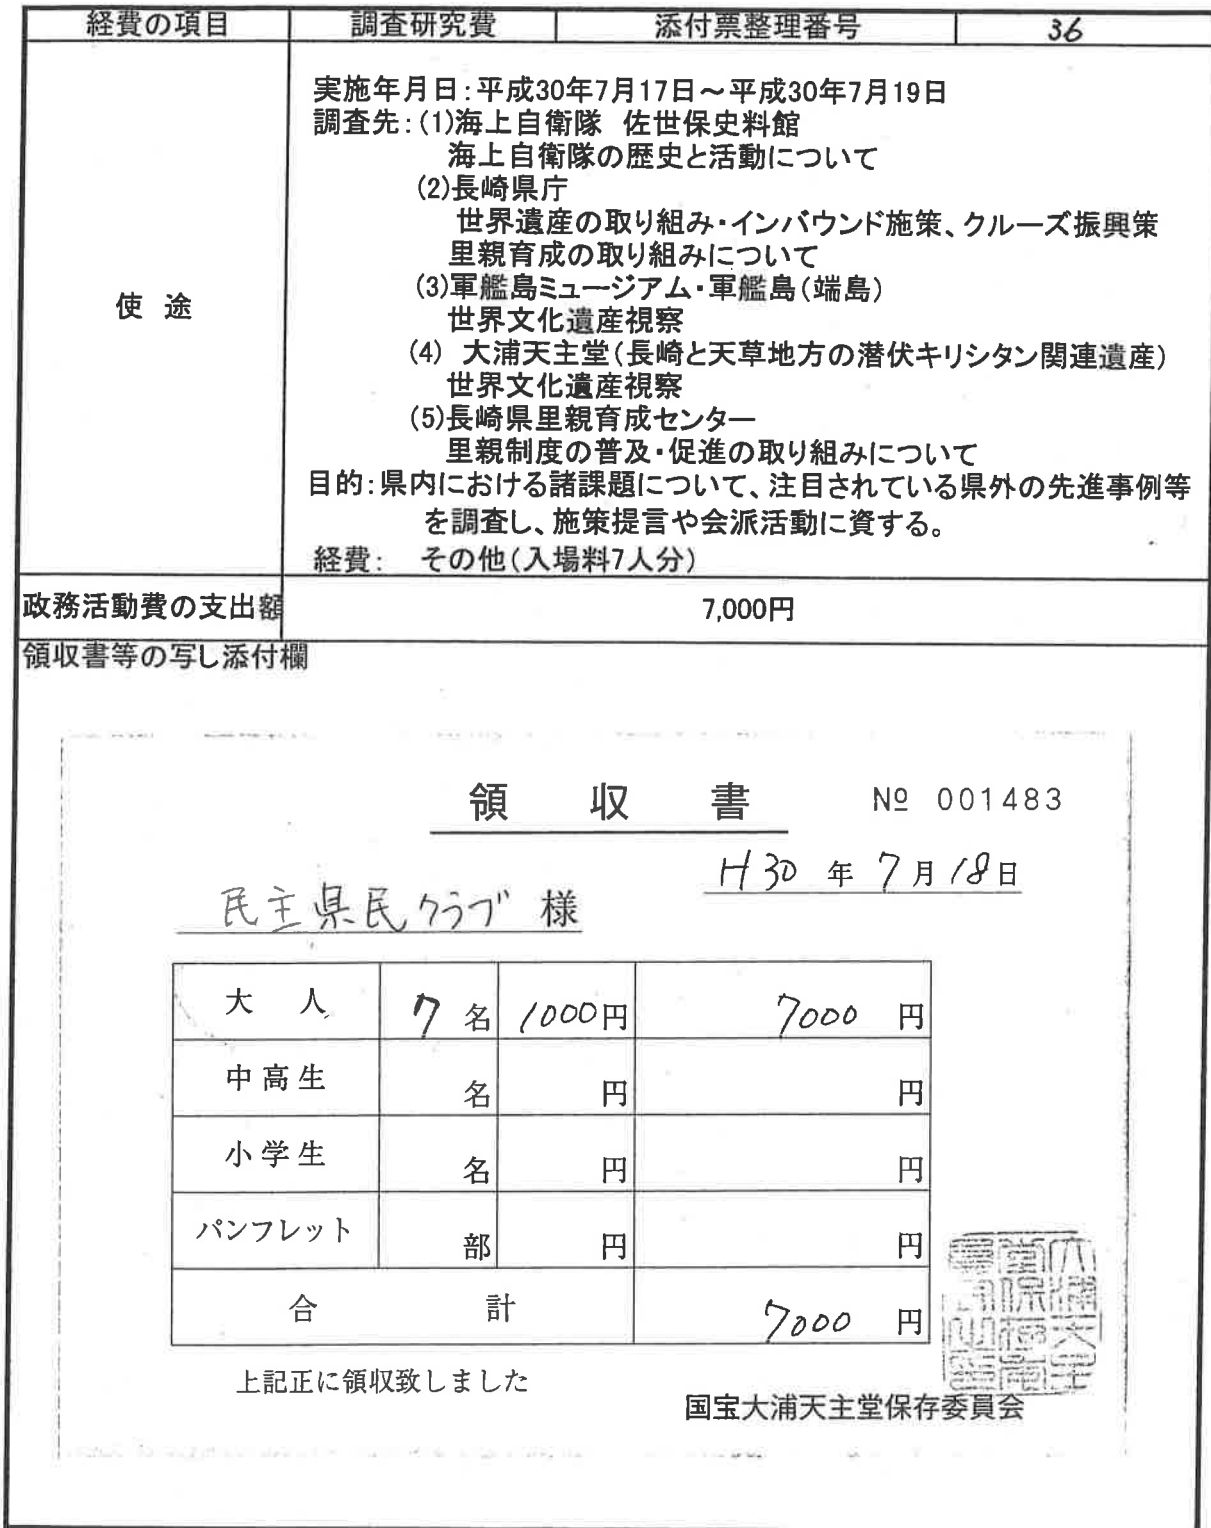 経費の項目 調査研究費 添付票整理番号 36
使 途
実施年月日:平成30年7月17日～平成30年7月19日
調査先:(1)海上自衛隊 佐世保史料館
海上自衛隊の歴史と活動について
(2)長崎県庁
世界遺産の取り組み・インバウンド施策、クルーズ振興策
里親育成の取り組みについて
(3)軍艦島ミュージアム・軍艦島(端島)
世界文化遺産視察
(4) 大浦天主堂(長崎と天草地方の潜伏キリシタン関連遺産)
世界文化遺産視察
(5)長崎県里親育成センター
里親制度の普及・促進の取り組みについて
目的:県内における諸課題について、注目されている県外の先進事例等
を調査し、施策提言や会派活動に資する。
経費: その他(入場料7人分)
政務活動費の支出額 7,000円
領収書等の写し添付欄
領 収 書 № 001483
H30 年 7月18日
民主県民クラブ 様
大 人 7 名 1000円 7000 円
中高生 名 円 円
小学生 名 円 円
パンフレット 部 円 円
合 計 7000 円
上記正に領収致しました
国宝大浦天主堂保存委員会